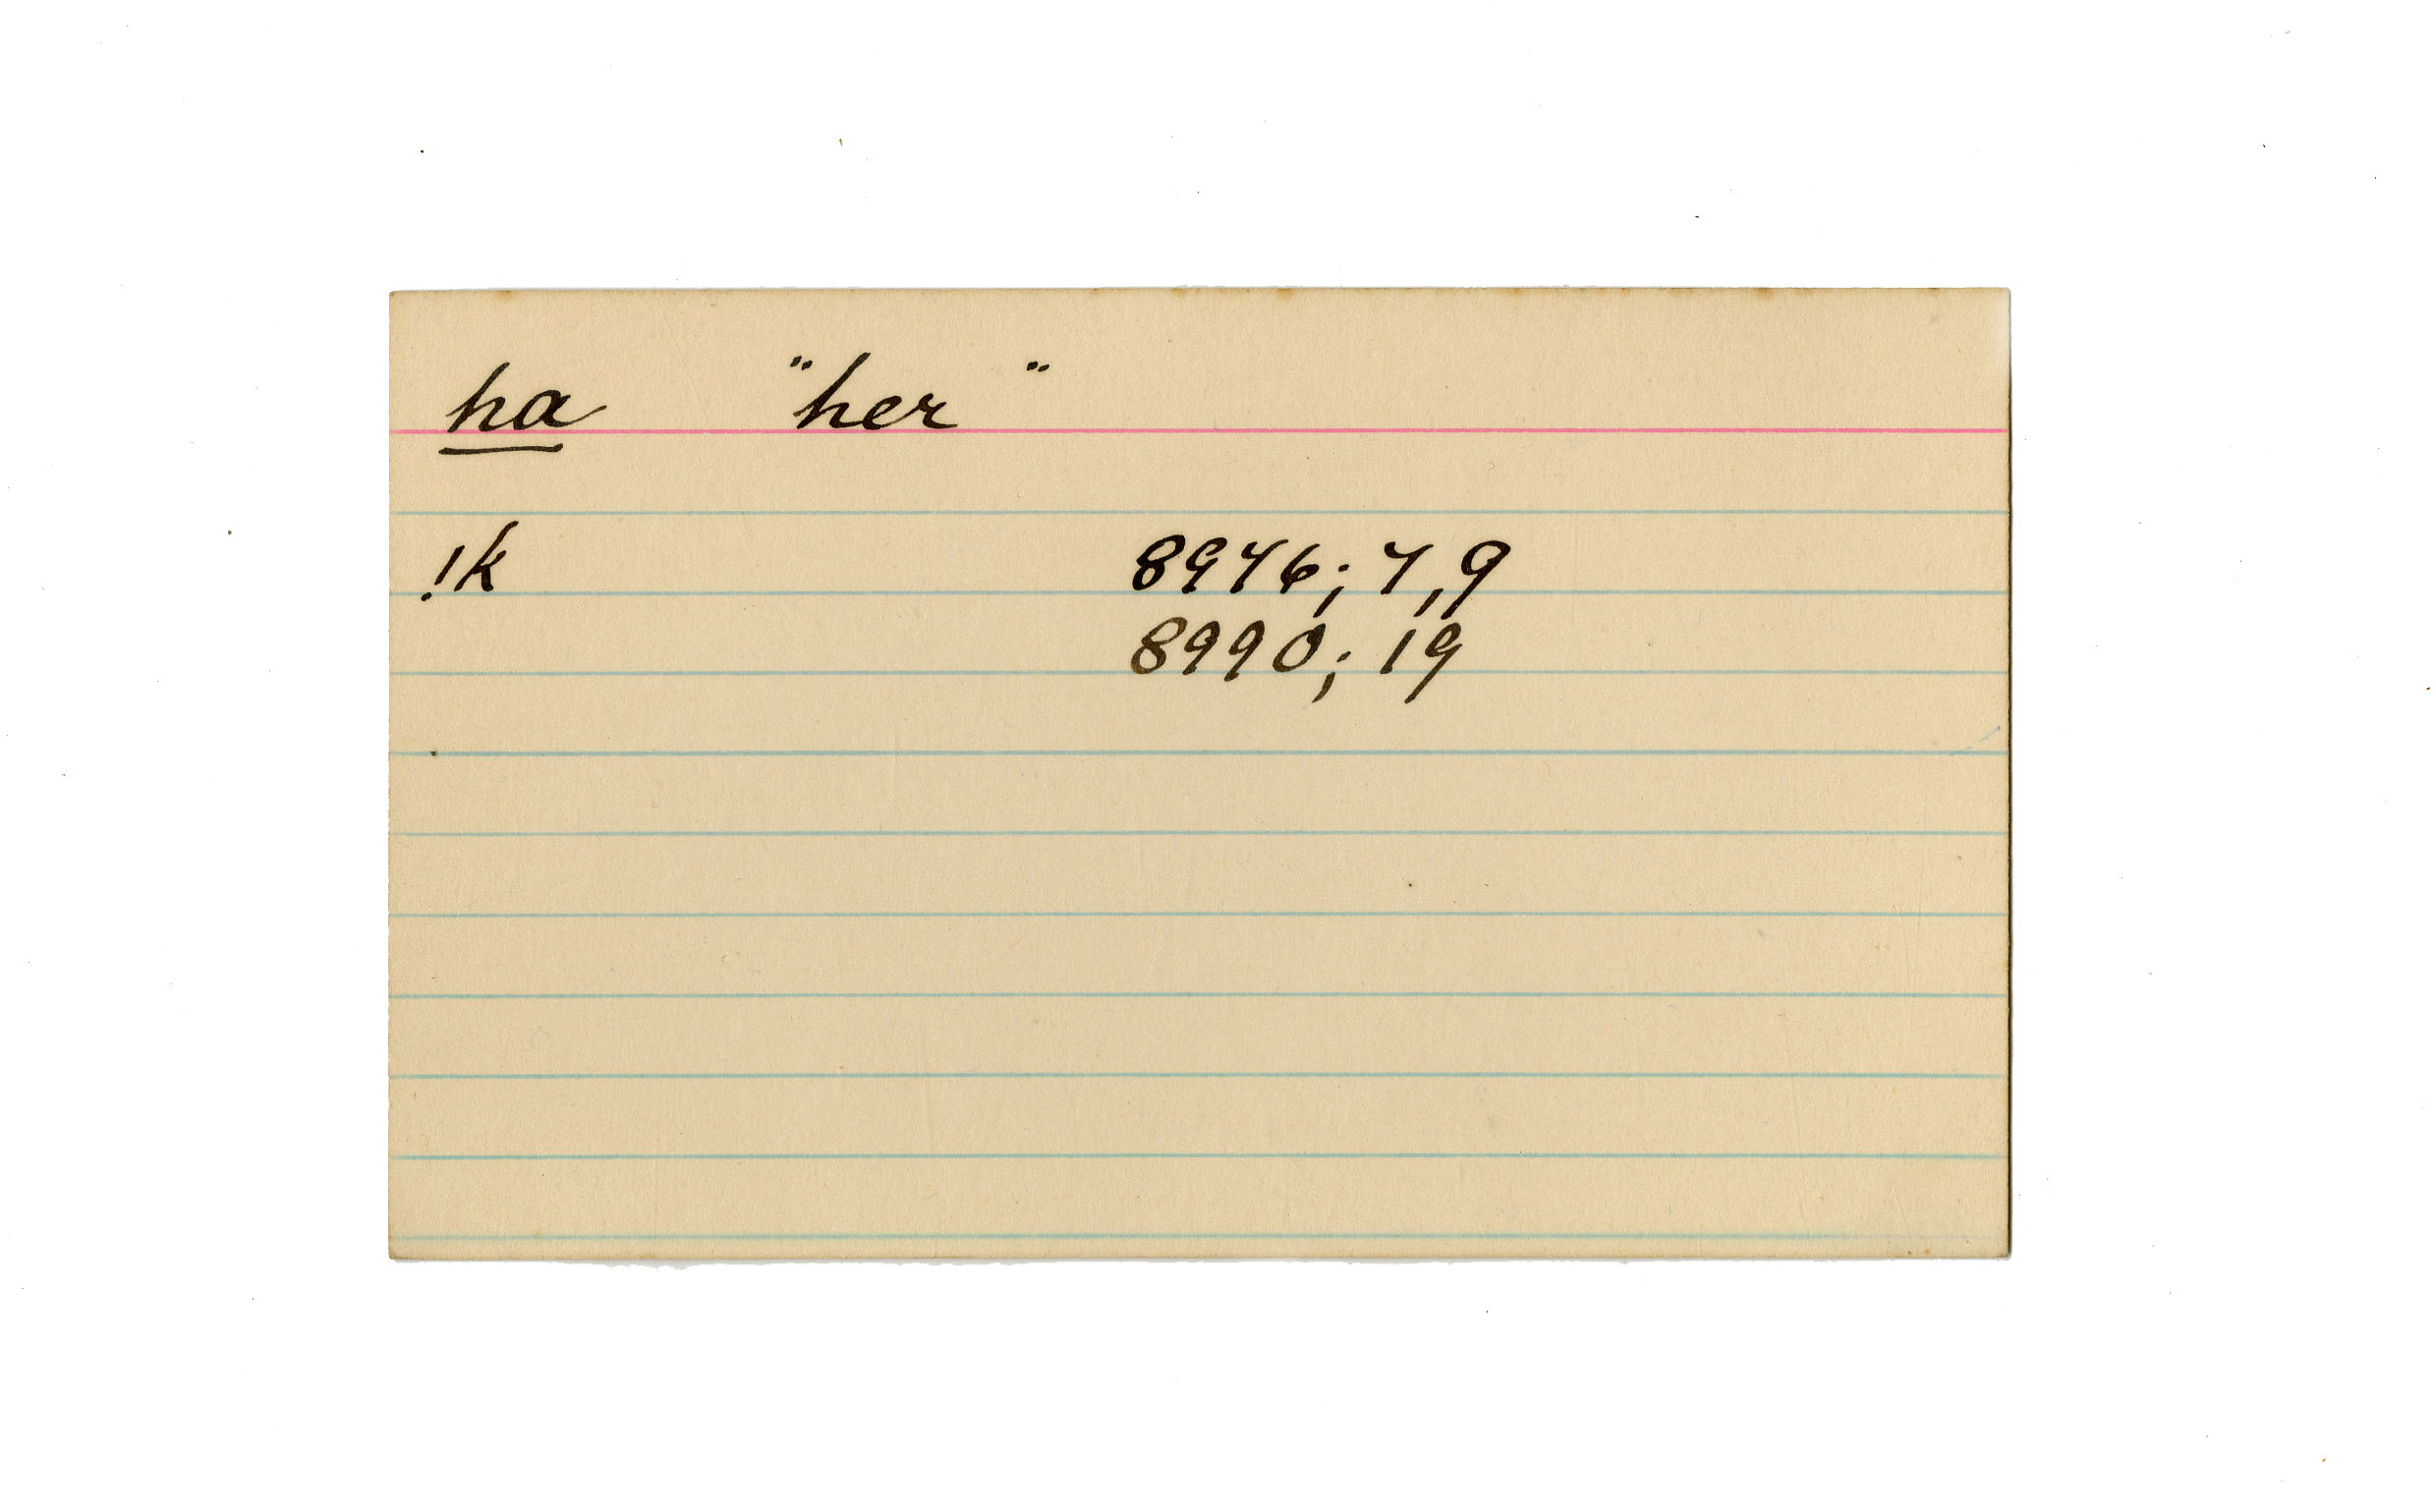 ha "her"
!k 8976; 7,9
8990; 19